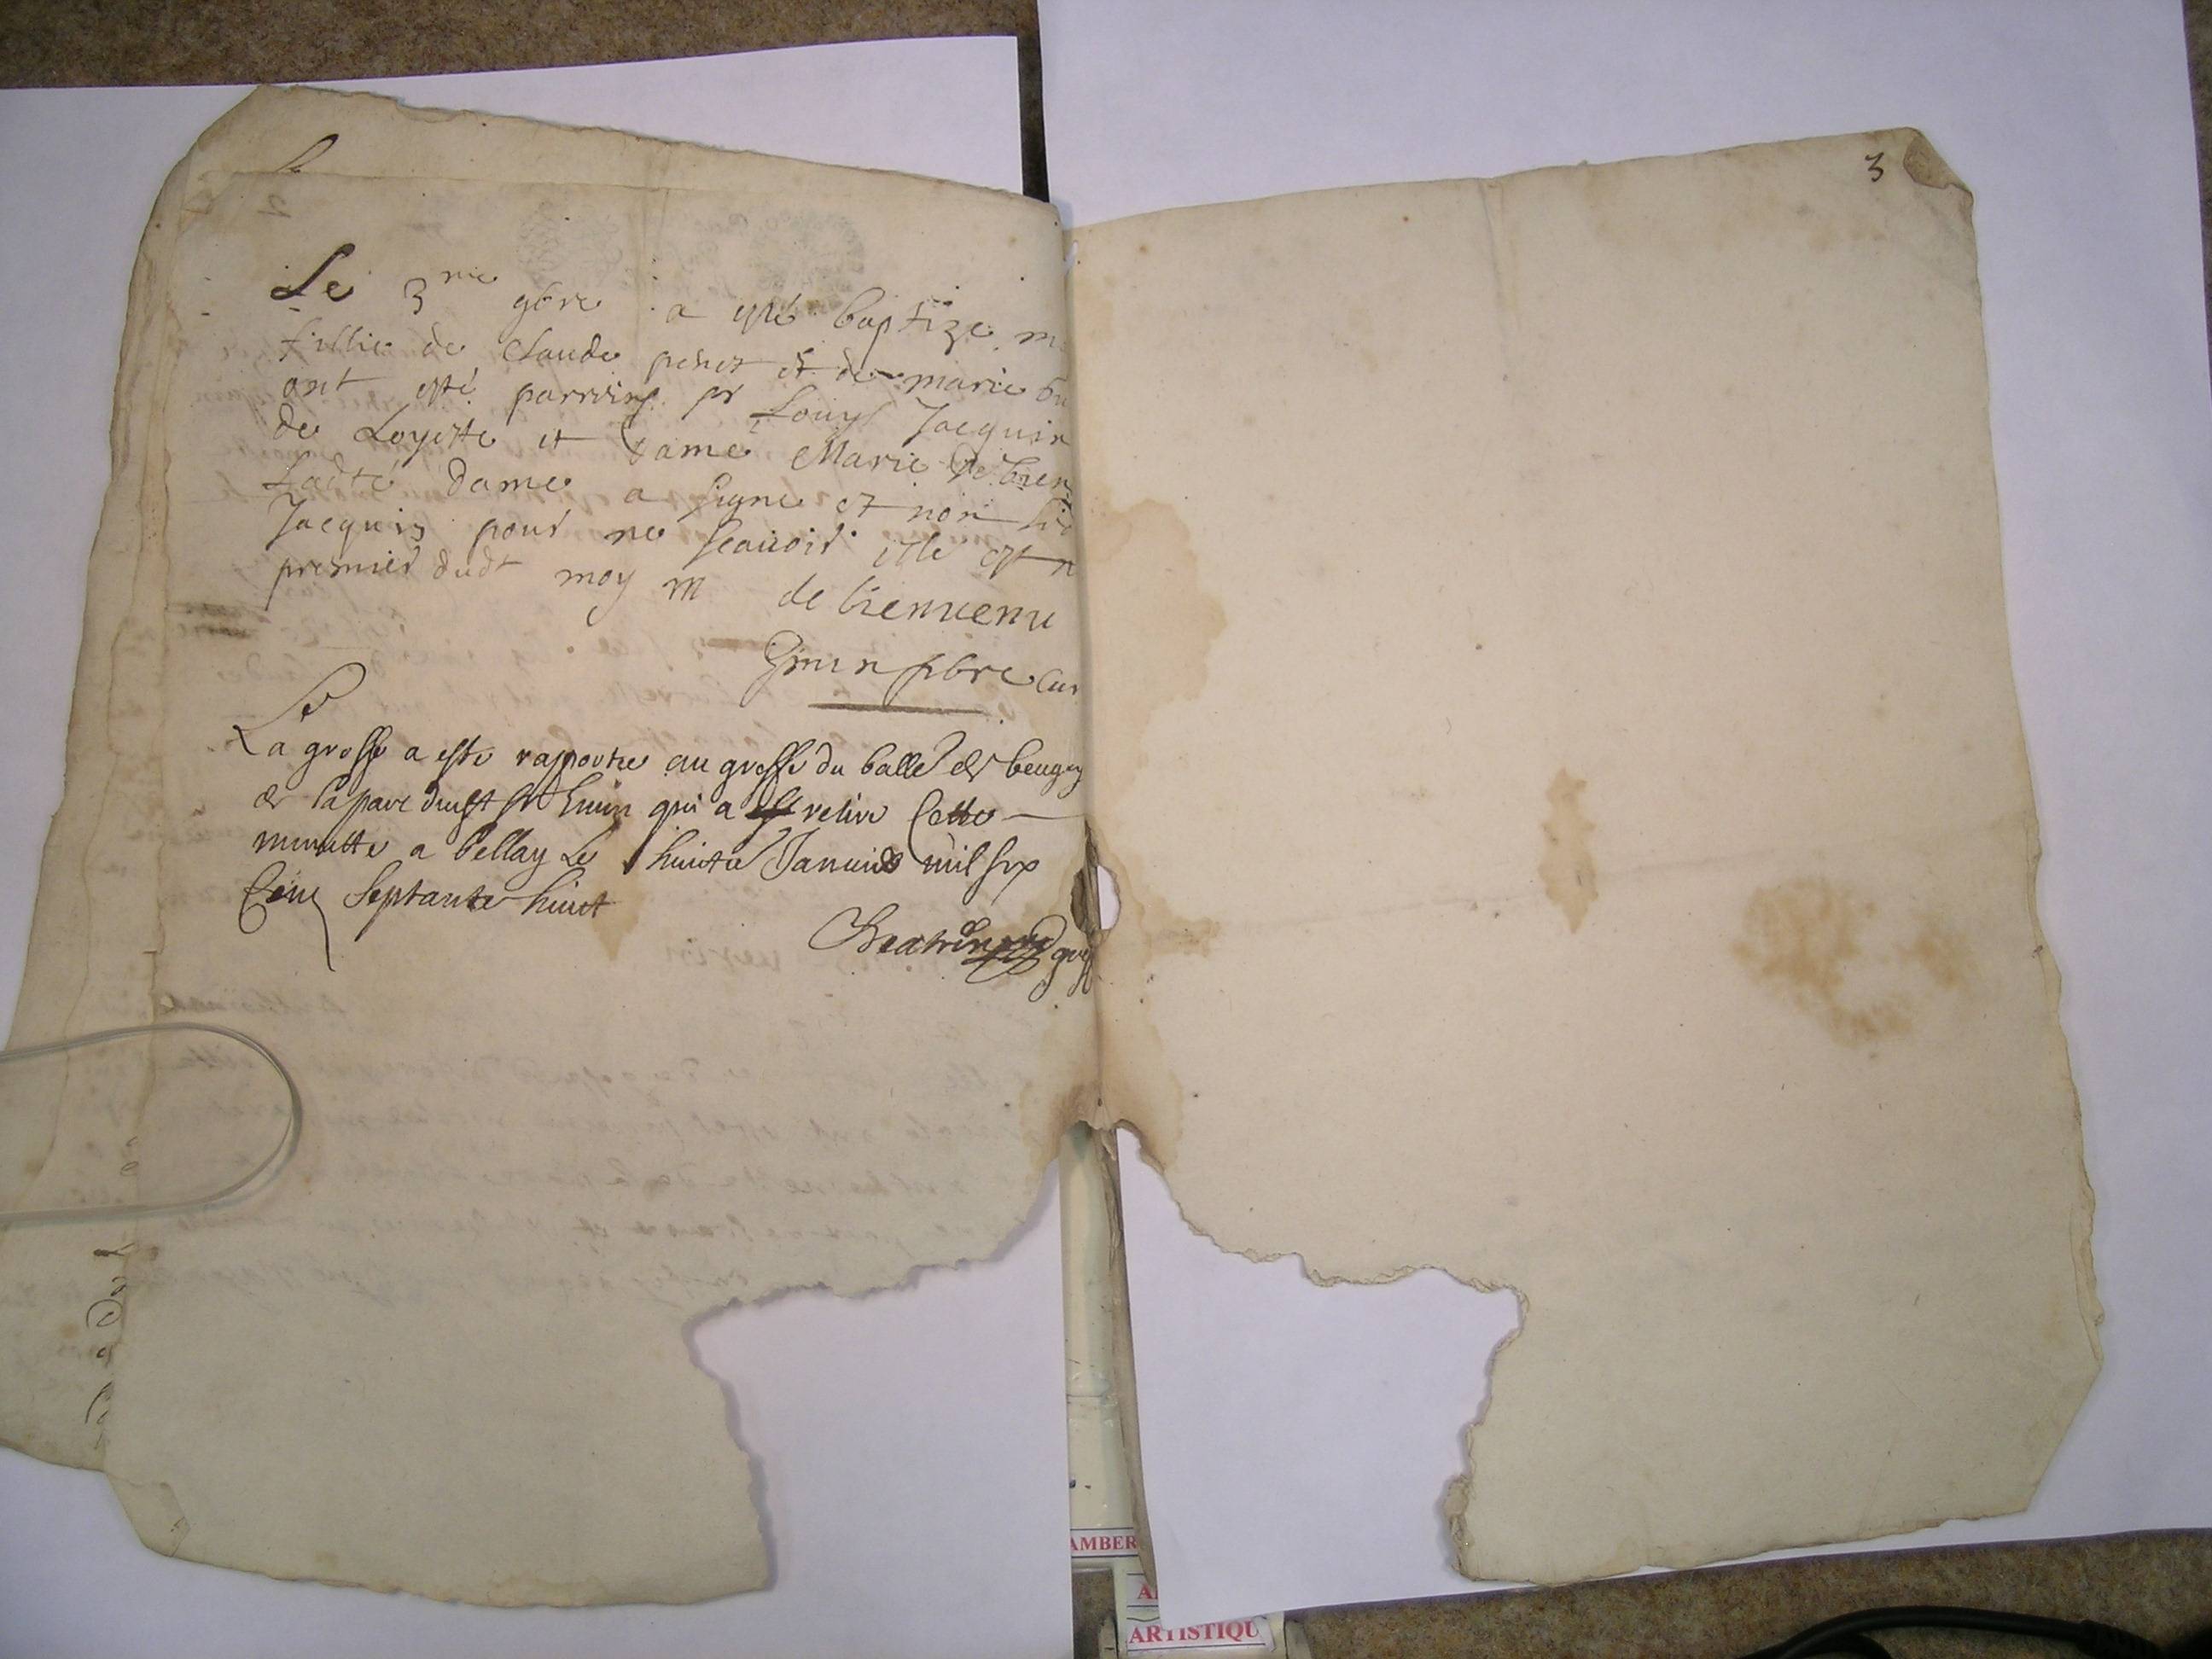 Le 3me 9bre a esté baptize m
fillie de Claude penet et de marie bu
ont esté parrains sr Louys Jacquin
de Loyette et Dame Marie de bien
Ladte dame a signe et non led
Jacquin pour ne scauoir elle est n
premier dudt moy M de bienuenu
pbre Cur
La grosse a este rapportee au greffe du balle de beugey
de la part dudt sr qui a retire Cette
minutte a bellay Le huictie Januier mil six
Cent Septante huict
3
AMBER
A
ARTISTIQU